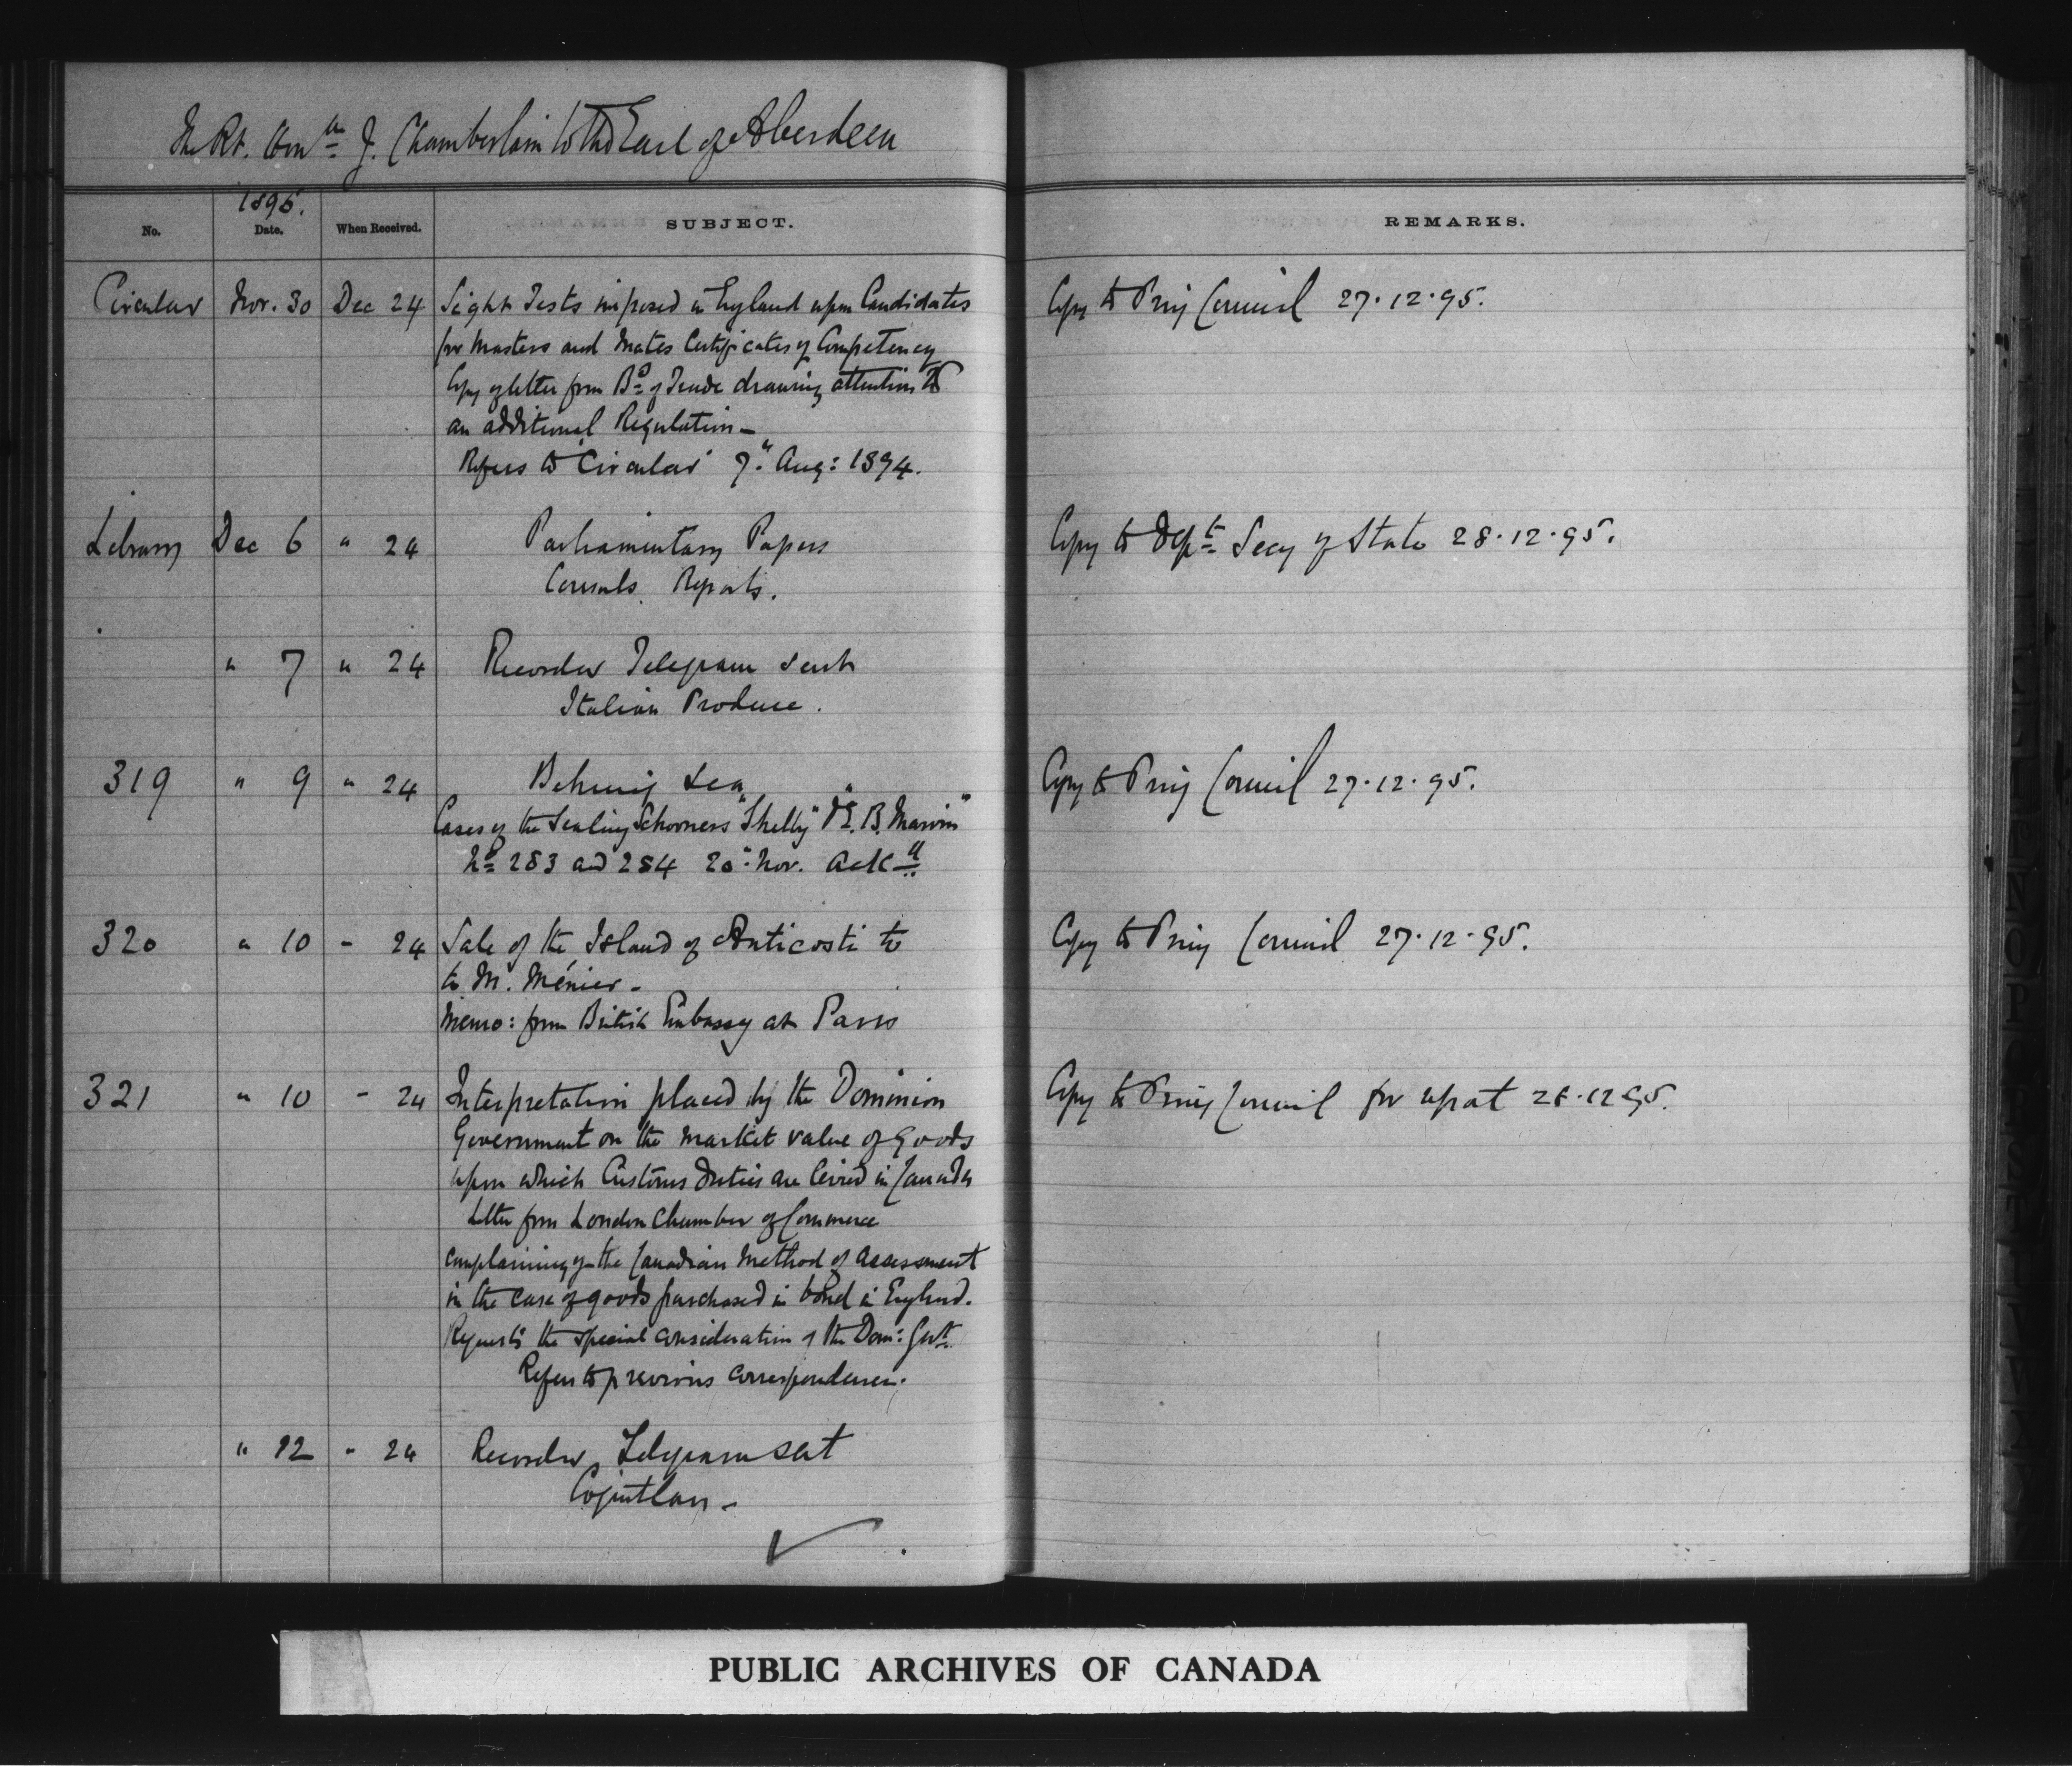 The Rt. Hon.ble J. Chamberlain to The Earl of Aberdeen
1895.
No. Date. When Received. SUBJECT. REMARKS.
Circular Nov. 30 Dec 24 Sight Tests imposed in England upon Candidates Copy to Privy Council 27.12.95.
for Masters and Mates Certificates of Competency
Copy of letter from Bd of Trade drawing attention to
an additional Regulation —
Refers to "Circular" 7" Aug: 1894.
Library Dec 6 " 24 Parliamentary Papers Copy to Dept Secy of State 28.12.95.
Consuls Reports.
" 7 " 24 Recorder Telegram sent
Italian Produce.
319 " 9 " 24 Behring Sea Copy to Privy Council 27.12.95.
Cases of the Sealing Schooners "Shelby" & "E. B. Marvin"
No 283 and 284 20" Nov. Ackd
320 " 10 " 24 Sale of the Island of Anticosti to Copy to Privy Council 27.12.95.
to M. Ménier -
Memo: from British Embassy at Paris
321 " 10 " 24 Interpretation placed by the Dominion Copy to Privy Council for report 28.12.95.
Government on the market value of goods
upon which Customs Duties are levied in Canada
Letter from London Chamber of Commerce
complaining of the Canadian method of assessment
in the case of goods purchased in bond in England.
Requests the special consideration of the Dom: Govt.
Refers to previous correspondence.
" 12 " 24 Recorder Telegram sent
PUBLIC ARCHIVES OF CANADA